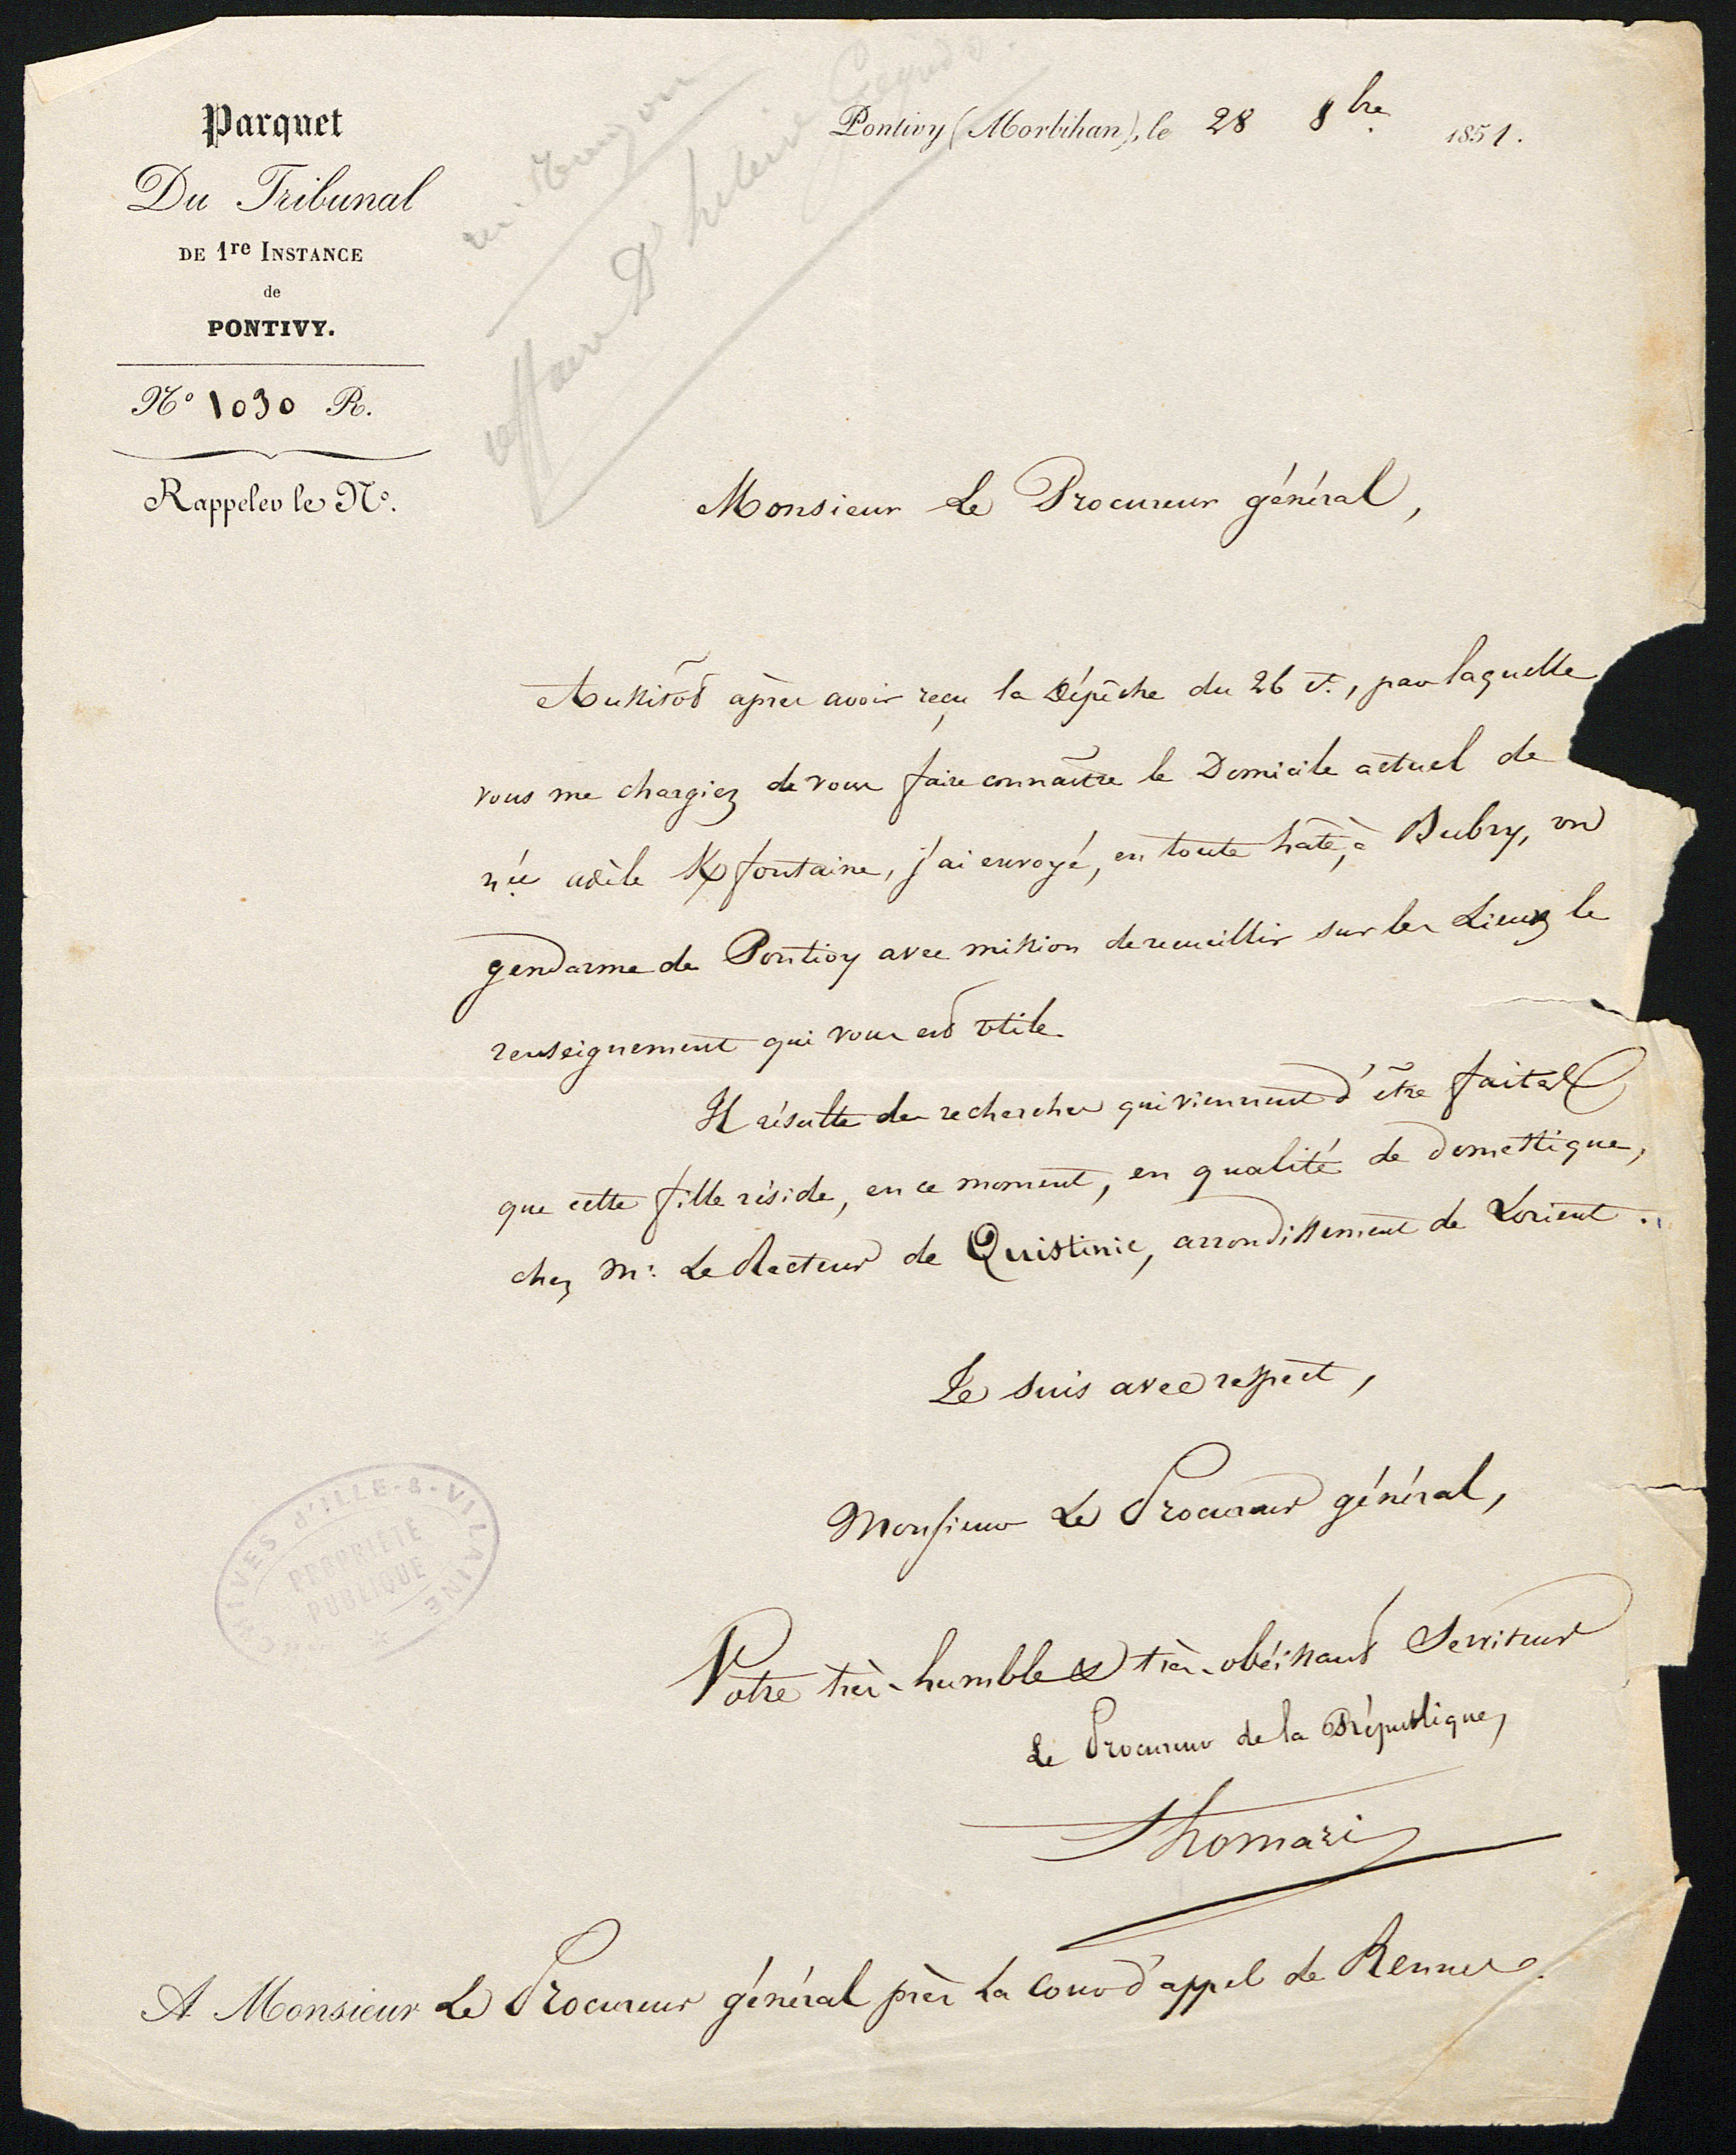 Parquet
Du Tribunal
DE 1re INSTANCE
de
PONTIVY.
N° 1030 R.
Rappeler le N°.
Pontivy (Morbihan), le 28 8bre 1851.
affaire d'helene Jegado.
Monsieur Le Procureur général,
Aussitôt après avoir reçu la Dépêche du 26 ct., par laquelle
vous me chargiez de vous faire connaître le Domicile actuel de
adèle Kfontaine, j'ai envoyé, en toute hâte, à Bubry, un
gendarme de Pontivy avec mission de recueillir sur les Lieux le
renseignement qui vous est utile.
Il résulte des recherches qui viennent d'être faites
que cette fille réside, en ce moment, en qualité de domestique,
chez Mr. Le Recteur de Quistinic, arrondissement de Lorient.
Je suis avec respect,
Monsieur Le Procureur général,
Votre très-humble & très-obéissant Serviteur
Le Procureur de la République,
A Monsieur Le Procureur général près La Cour d'appel de Rennes.
ARCHIVES d'ILLE-&-VILAINE
PROPRIÉTÉ
PUBLIQUE